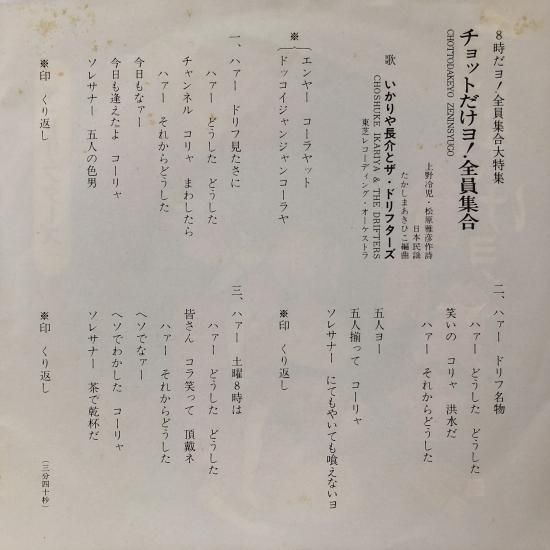 8時だヨ！全員集合大特集
チョットだけョ！全員集合
CHOTTODAKEYO ZENINSYUGO
上野冷児・松原雅彦作詩
日本民謡
たかしまあきひこ編曲
歌 いかりや長介とザ・ドリフターズ
CHOSHUKE IKARIYA & THE DRIFTERS
東芝レコーディング・オーケストラ
※
エンヤー コーラヤット
ドッコイジャンジャンコーラヤ
一、ハァー ドリフ見たさに
ハァー どうした どうした
チャンネル コリャ まわしたら
ハァー それからどうした
今日もなァー
今日も逢えたよ コーリャ
ソレサナー 五人の色男
※印 くり返し
二、ハァー ドリフ名物
ハァー どうした どうした
笑いの コリャ 洪水だ
ハァー それからどうした
五人ヨー
五人揃って コーリャ
ソレサナー にてもやいても喰えないヨ
※印 くり返し
三、ハァー 土曜8時は
ハァー どうした どうした
皆さん コラ笑って 頂戴ネ
ハァー それからどうした
ヘソでなァー
ヘソでわかした コーリャ
ソレサナー 茶で乾杯だ
※印 くり返し
（三分四十秒）